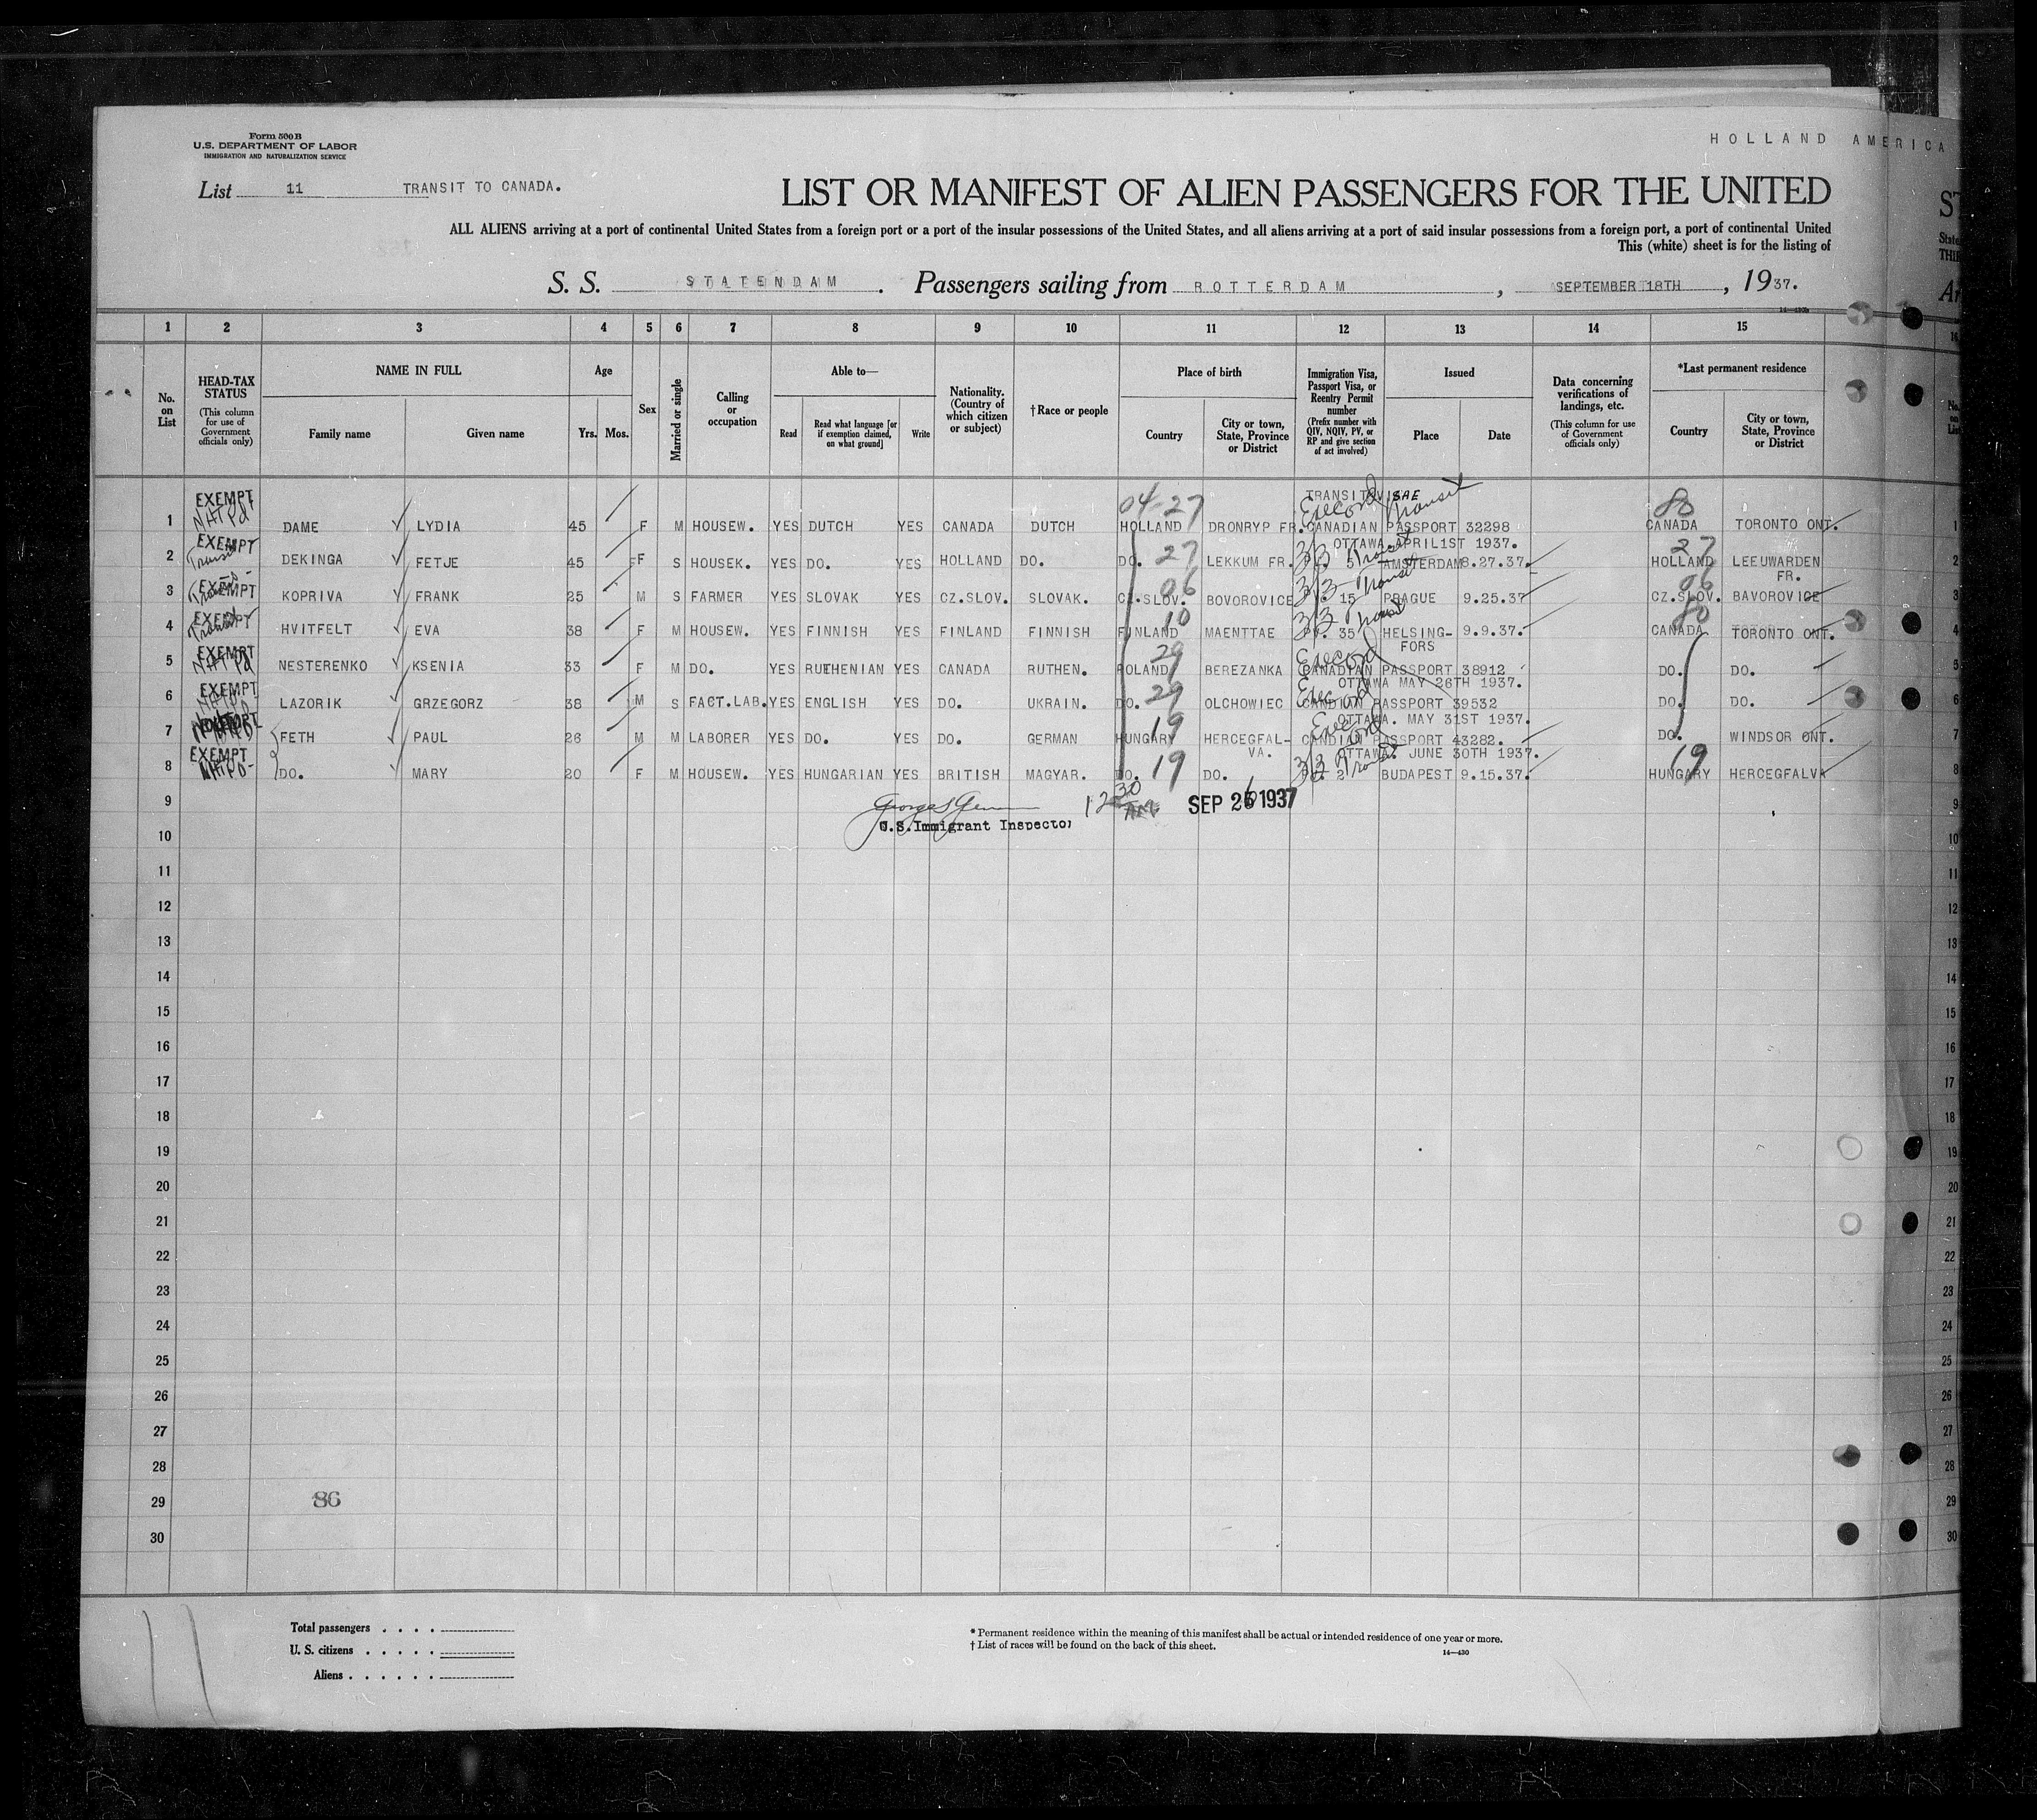 Form 500 B
U.S. DEPARTMENT OF LABOR
IMMIGRATION AND NATURALIZATION SERVICE
HOLLAND AMERICA
List 11 TRANSIT TO CANADA.
LIST OR MANIFEST OF ALIEN PASSENGERS FOR THE UNITED
ALL ALIENS arriving at a port of continental United States from a foreign port or a port of the insular possessions of the United States, and all aliens arriving at a port of said insular possessions from a foreign port, a port of continental United
This (white) sheet is for the listing of
S. S. STATENDAM. Passengers sailing from ROTTERDAM, SEPTEMBER 18TH, 1937.
1 2 3 4 5 6 7 8 9 10 11 12 13 14 15 16
No. on List
HEAD-TAX STATUS (This column for use of Government officials only)
NAME IN FULL
Family name Given name
Age
Yrs. Mos.
Sex
Married or single
Calling or occupation
Able to—
Read Read what language [or if exemption claimed, on what ground] Write
Nationality. (Country of which citizen or subject)
†Race or people
Place of birth
Country City or town, State, Province or District
Immigration Visa, Passport Visa, or Reentry Permit number (Prefix number with QIV, NQIV, PV, or RP and give section of act involved)
Issued
Place Date
Data concerning verifications of landings, etc. (This column for use of Government officials only)
*Last permanent residence
Country City or town, State, Province or District
EXEMPT 04-27 TRANSIT VISAE Transit 80
1 DAME LYDIA 45 F M HOUSEW. YES DUTCH YES CANADA DUTCH HOLLAND DRONRYP FR. CANADIAN PASSPORT 32298 CANADA TORONTO ONT. 1
EXEMPT OTTAWA APRIL 1ST 1937.
2 Transit DEKINGA FETJE 45 F S HOUSEK. YES DO. YES HOLLAND DO. DO. 27 LEKKUM FR. 3/3 Transit 5 AMSTERDAM 8.27.37. 27 HOLLAND LEEUWARDEN FR. 2
EXEMPT
3 Transit KOPRIVA FRANK 25 M S FARMER YES SLOVAK YES CZ.SLOV. SLOVAK. CZ.SLOV. 06 BOVOROVICE 3/3 Transit 15 PRAGUE 9.25.37 06 CZ.SLOV. BAVOROVICE 3
EXEMPT
4 Transit HVITFELT EVA 38 F M HOUSEW. YES FINNISH YES FINLAND FINNISH FINLAND 10 MAENTTAE 3/3 Transit 35 HELSING-FORS 9.9.37. 80 CANADA TORONTO ONT. 4
EXEMPT
5 NESTERENKO KSENIA 33 F M DO. YES RUTHENIAN YES CANADA RUTHEN. POLAND 29 BEREZANKA CANADIAN PASSPORT 38912 DO. DO. 5
EXEMPT OTTAWA MAY 26TH 1937.
6 LAZORIK GRZEGORZ 38 M S FACT.LAB. YES ENGLISH YES DO. UKRAIN. DO. 29 OLCHOWIEC CANDIAN PASSPORT 39532 DO. DO. 6
OTTAWA. MAY 31ST 1937.
7 FETH PAUL 26 M M LABORER YES DO. YES DO. GERMAN HUNGARY 19 HERCEGFAL-VA. CANDIAN PASSPORT 43282. DO. WINDSOR ONT. 7
EXEMPT OTTAWA. JUNE 30TH 1937.
8 DO. MARY 20 F M HOUSEW. YES HUNGARIAN YES BRITISH MAGYAR. DO. 19 DO. 3/3 Transit 2 BUDAPEST 9.15.37. 19 HUNGARY HERCEGFALVA 8
9 12 30 AM SEP 26 1937 9
U.S. Immigrant Inspector
10 10
11 11
12 12
13 13
14 14
15 15
16 16
17 17
18 18
19 19
20 20
21 21
22 22
23 23
24 24
25 25
26 26
27 27
28 28
29 86 29
30 30
Total passengers
U. S. citizens
Aliens
* Permanent residence within the meaning of this manifest shall be actual or intended residence of one year or more.
† List of races will be found on the back of this sheet.
14—430